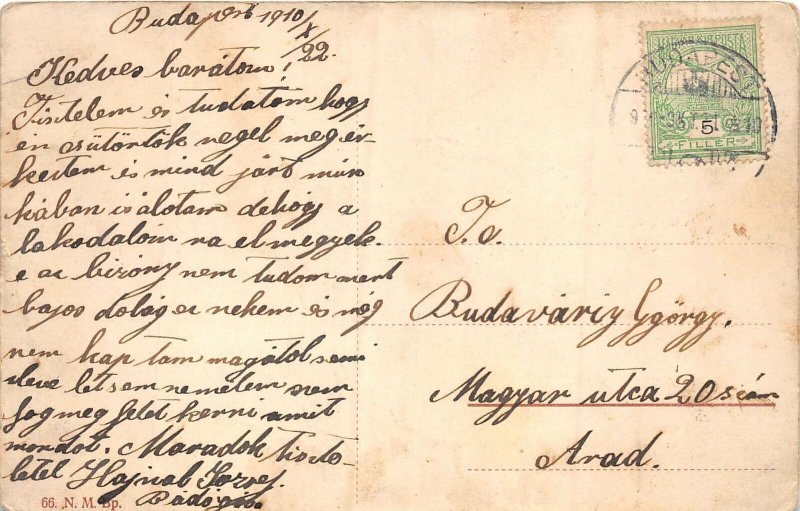 Budapest 1910/X/22.
Kedves barátom!
Tistelem és tudatom hogy
én csütörtök regel megér-
kestem és mind járt mún
kában is álotam dehogy a
lakodaloim ra elmegyek-
e az bizony nem tudom mert
bajos dolog ez nekem és még
nem kap tam magától semi
nem
fog meg mit
mondot. Maradok tiszte-
letel Hajnal
66. N. M. Bp.
MAGYAR KIR. POSTA
5
FILLÉR
BUDAPEST
T. c.
Budaváriy Győrgy.
Magyar utca 20 szám
Arad.